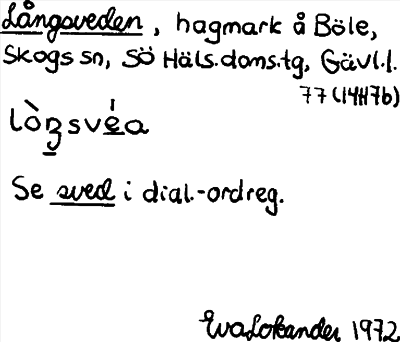 Långsveden, hagmark å Böle,
Skogs sn, Sö Häls.doms.tg, Gävl.l.
77 (14H7b)
lòŋsvéa
Se sved i dial.-ordreg.
Eva Lokander 1972